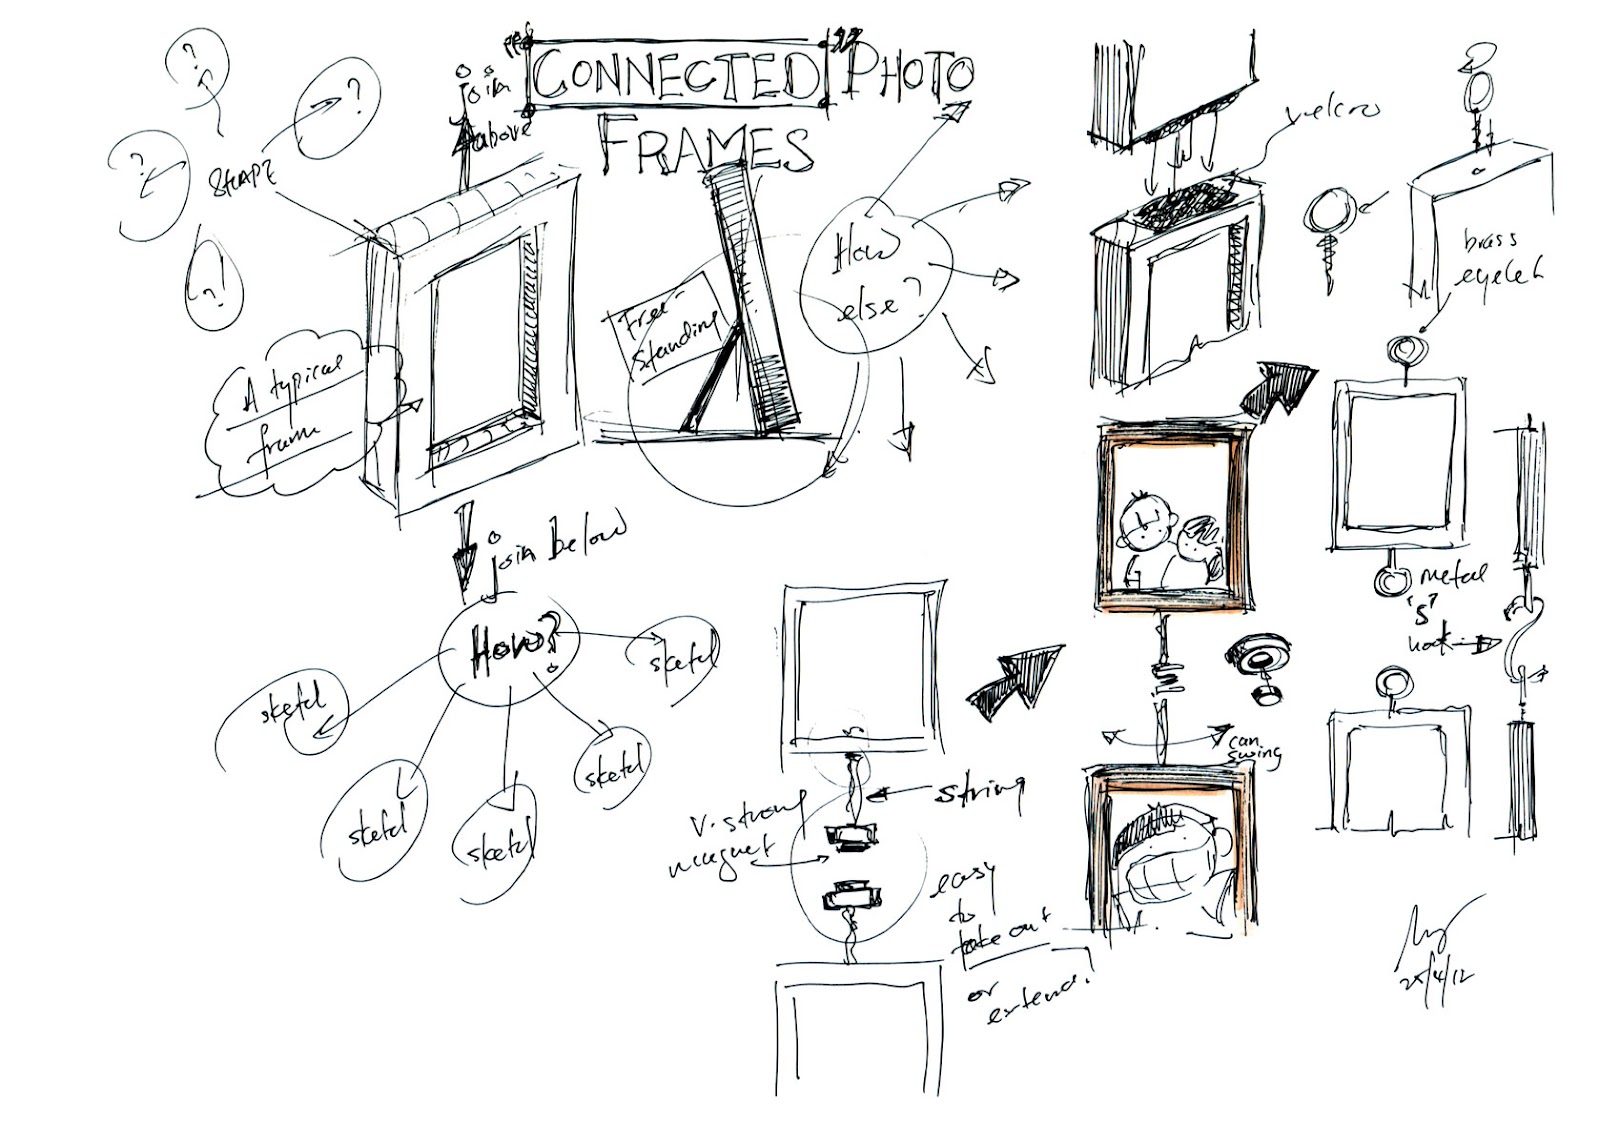 CONNECTED PHOTO
FRAMES
join
above
?
?
?
?!
SHAPE
A typical
frame
Free-
standing
How
else?
velcro
brass
eyelet
join below
How?
sketch
sketch
sketch
sketch
sketch
string
V. strong
magnet
easy
to
take out
or
extend.
can
swing
metal
'S'
hook